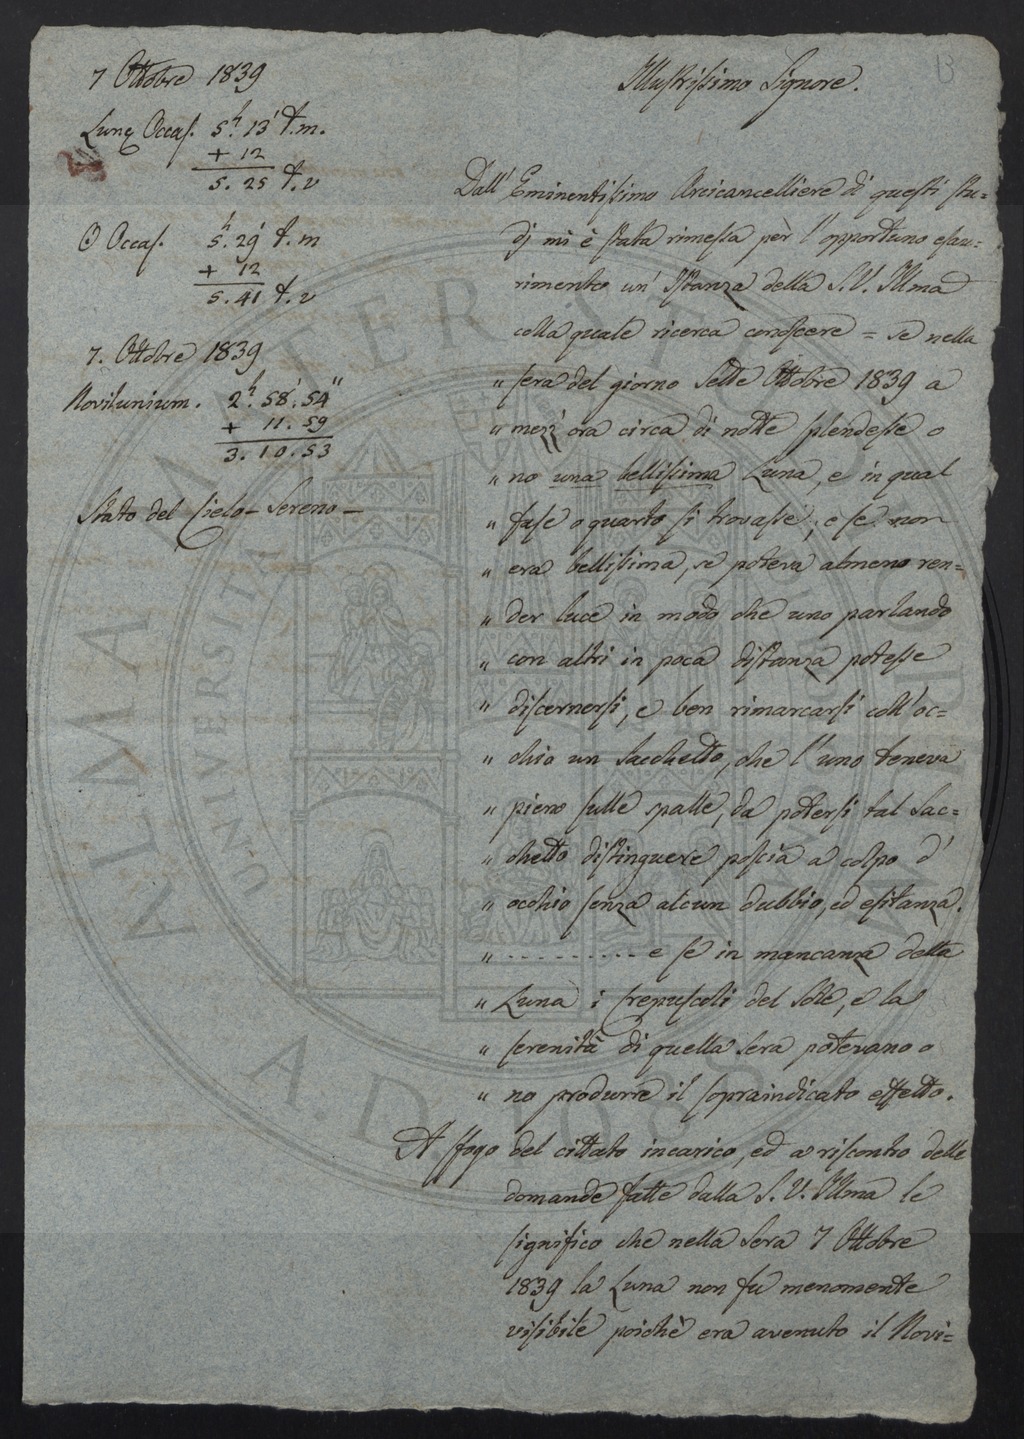 13
7 Ottobre 1839
Lunę Occas. 5.h 13' t.m.
+ 12
5. 25 t.v
☉ Occas. 5.h 29' t.m
+ 12
5. 41 t.v
7. Ottobre 1839
Novilunium. 2.h 58.' 54"
+ 11. 59
3. 10. 53
Stato del Cielo - Sereno -
Illustrissimo Signore.
Dall' Eminentissimo Arcicancelliere di questi stu=
dj mi è stata rimessa per l'opportuno esau=
rimento un' Istanza della S.V. Illma
colla quale ricerca conoscere = se nella
" sera del giorno Sette Ottobre 1839 a
" mezz'ora circa di notte splendesse o
" no una bellissima Luna, e in qual
" fase o quarto si trovasse; e se non
" era bellissima, se poteva almeno ren=
" der luce in modo che uno parlando
" con altri in poca distanza potesse
" discernersi, e ben rimarcarsi coll'oc=
" chio un Sacchetto, che l'uno teneva
" pieno sulle spalle, da potersi tal Sac=
" chetto distinguere poscia a colpo d'
" occhio senza alcun dubbio, ed esitanza.
" .......... e se in mancanza della
" Luna i crepuscoli del Sole, e la
" serenità di quella sera potevano o
" no produrre il sopraindicato effetto.
A sfogo del cittato incarico, ed a riscontro delle
domande fatte dalla S.V. Illma le
significo che nella Sera 7 Ottobre
1839 la Luna non fu menomente
visibile poichè era avenuto il Novi=
ALMA MATER STUDIORUM
UNIVERSITÀ DI BOLOGNA
A.D. 1088